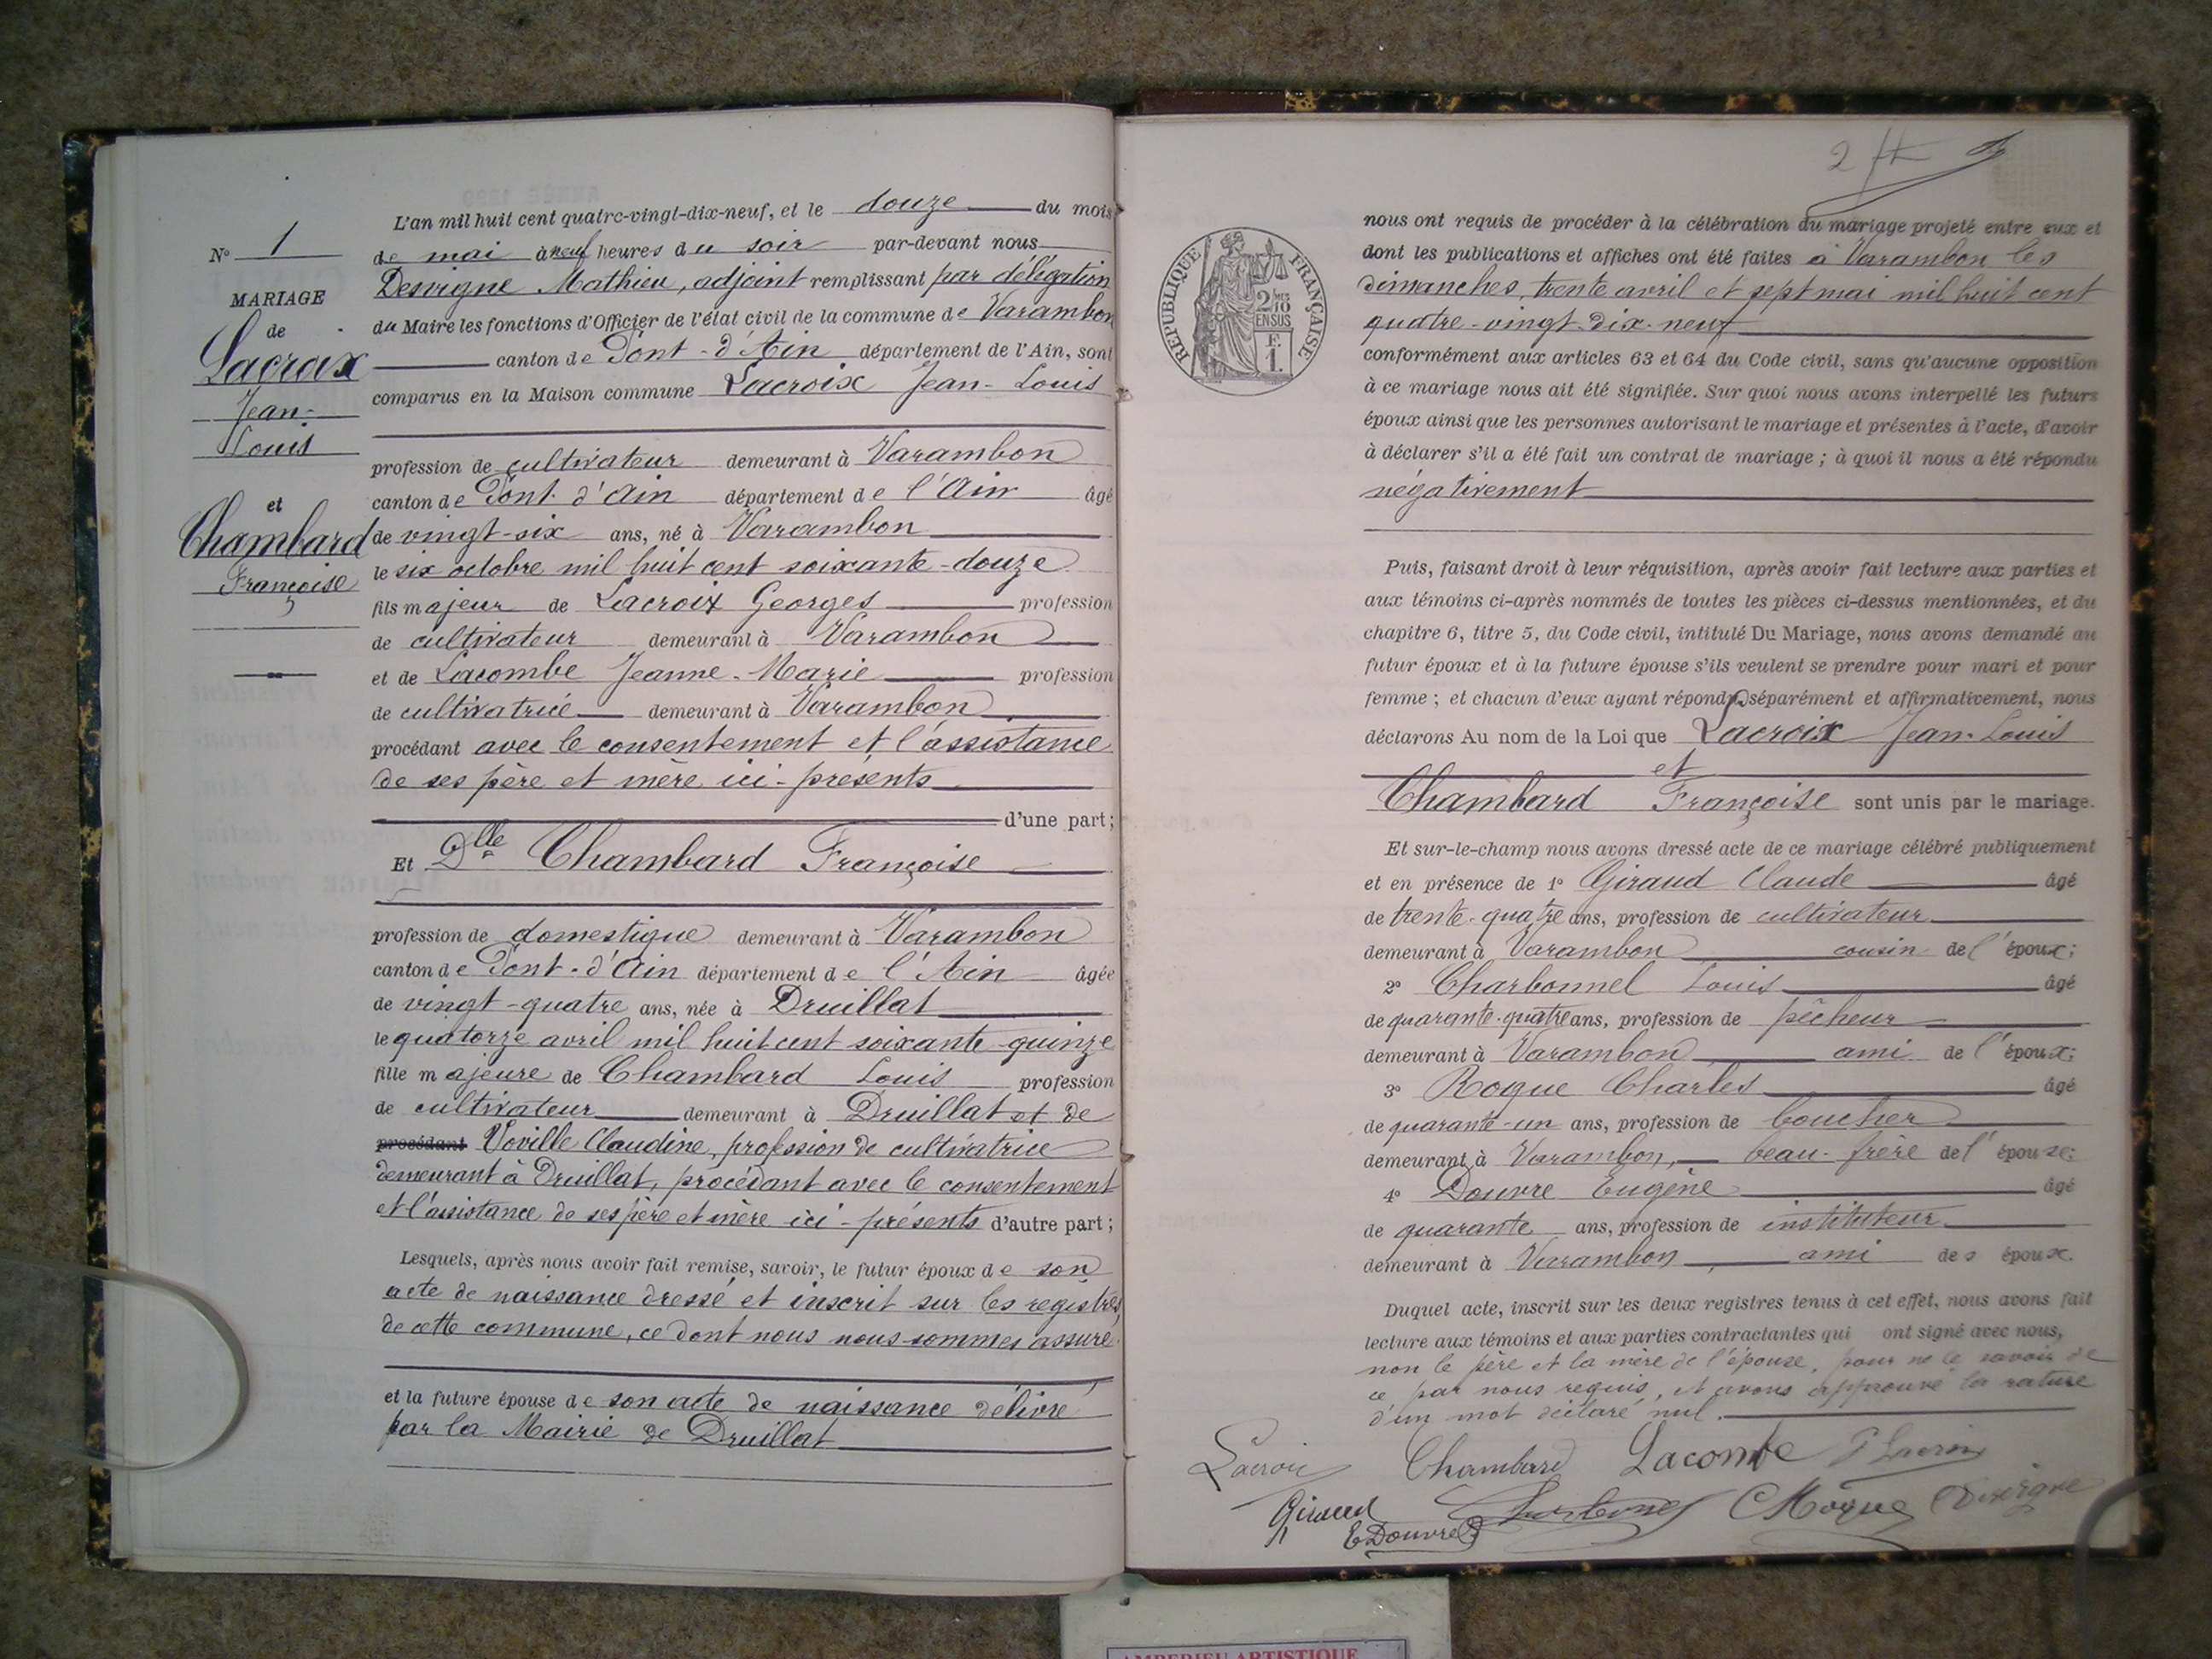 L'an mil huit cent quatre-vingt-dix-neuf, et le douze du mois
N° 1
de mai à neuf heures du soir par-devant nous
Desvigne Mathieu, adjoint remplissant par délégation
MARIAGE
du Maire les fonctions d'Officier de l'état civil de la commune de Varambon
de
canton de Pont-d'Ain département de l'Ain, sont
Lacroix
comparus en la Maison commune Lacroix Jean-Louis
Jean-
Louis
profession de cultivateur demeurant à Varambon
canton de Pont-d'Ain département de l'Ain âgé
et
Chambard
de vingt-six ans, né à Varambon
Françoise
le six octobre mil huit cent soixante-douze
fils majeur de Lacroix Georges profession
de cultivateur demeurant à Varambon
et de Lacombe Jeanne-Marie profession
de cultivatrice demeurant à Varambon
procédant avec le consentement et l'assistance
de ses père et mère ici-présents
d'une part;
Et Dlle Chambard Françoise
profession de domestique demeurant à Varambon
canton de Pont-d'Ain département de l'Ain âgée
de vingt-quatre ans, née à Druillat
le quatorze avril mil huit cent soixante-quinze
fille majeure de Chambard Louis profession
de cultivateur demeurant à Druillat et de
procédant Voville Claudine, profession de cultivatrice
demeurant à Druillat, procédant avec le consentement
et l'assistance de ses père et mère ici-présents d'autre part;
Lesquels, après nous avoir fait remise, savoir, le futur époux de son
acte de naissance dressé et inscrit sur les registres
de cette commune, ce dont nous nous sommes assuré
et la future épouse de son acte de naissance délivré
par la Mairie de Druillat
2
RÉPUBLIQUE FRANÇAISE
2/10 EN SUS
F. 1.
nous ont requis de procéder à la célébration du mariage projeté entre eux et
dont les publications et affiches ont été faites à Varambon les
dimanches, trente avril et sept mai mil huit cent
quatre-vingt-dix-neuf
conformément aux articles 63 et 64 du Code civil, sans qu'aucune opposition
à ce mariage nous ait été signifiée. Sur quoi nous avons interpellé les futurs
époux ainsi que les personnes autorisant le mariage et présentes à l'acte, d'avoir
à déclarer s'il a été fait un contrat de mariage; à quoi il nous a été répondu
négativement
Puis, faisant droit à leur réquisition, après avoir fait lecture aux parties et
aux témoins ci-après nommés de toutes les pièces ci-dessus mentionnées, et du
chapitre 6, titre 5, du Code civil, intitulé Du Mariage, nous avons demandé au
futur époux et à la future épouse s'ils veulent se prendre pour mari et pour
femme; et chacun d'eux ayant répondu séparément et affirmativement, nous
déclarons Au nom de la Loi que Lacroix Jean-Louis
et
Chambard Françoise sont unis par le mariage.
Et sur-le-champ nous avons dressé acte de ce mariage célébré publiquement
et en présence de 1° Giraud Claude âgé
de trente-quatre ans, profession de cultivateur
demeurant à Varambon cousin de l'époux;
2° Charbonnel Louis âgé
de quarante-quatre ans, profession de pêcheur
demeurant à Varambon ami de l'époux;
3° Roque Charles âgé
de quarante-un ans, profession de boucher
demeurant à Varambon, beau-frère de l'épouse;
4° Douvre Eugène âgé
de quarante ans, profession de instituteur
demeurant à Varambon, ami des époux.
Duquel acte, inscrit sur les deux registres tenus à cet effet, nous avons fait
lecture aux témoins et aux parties contractantes qui ont signé avec nous,
non le père et la mère de l'épouse, pour ne le savoir de
ce par nous requis, et avons approuvé la rature
d'un mot déclaré nul.
Lacroix Chambard Lacombe Lacroix
Giraud Charbonnel Desvigne
E Douvre
AMBERIEU ARTISTIQUE